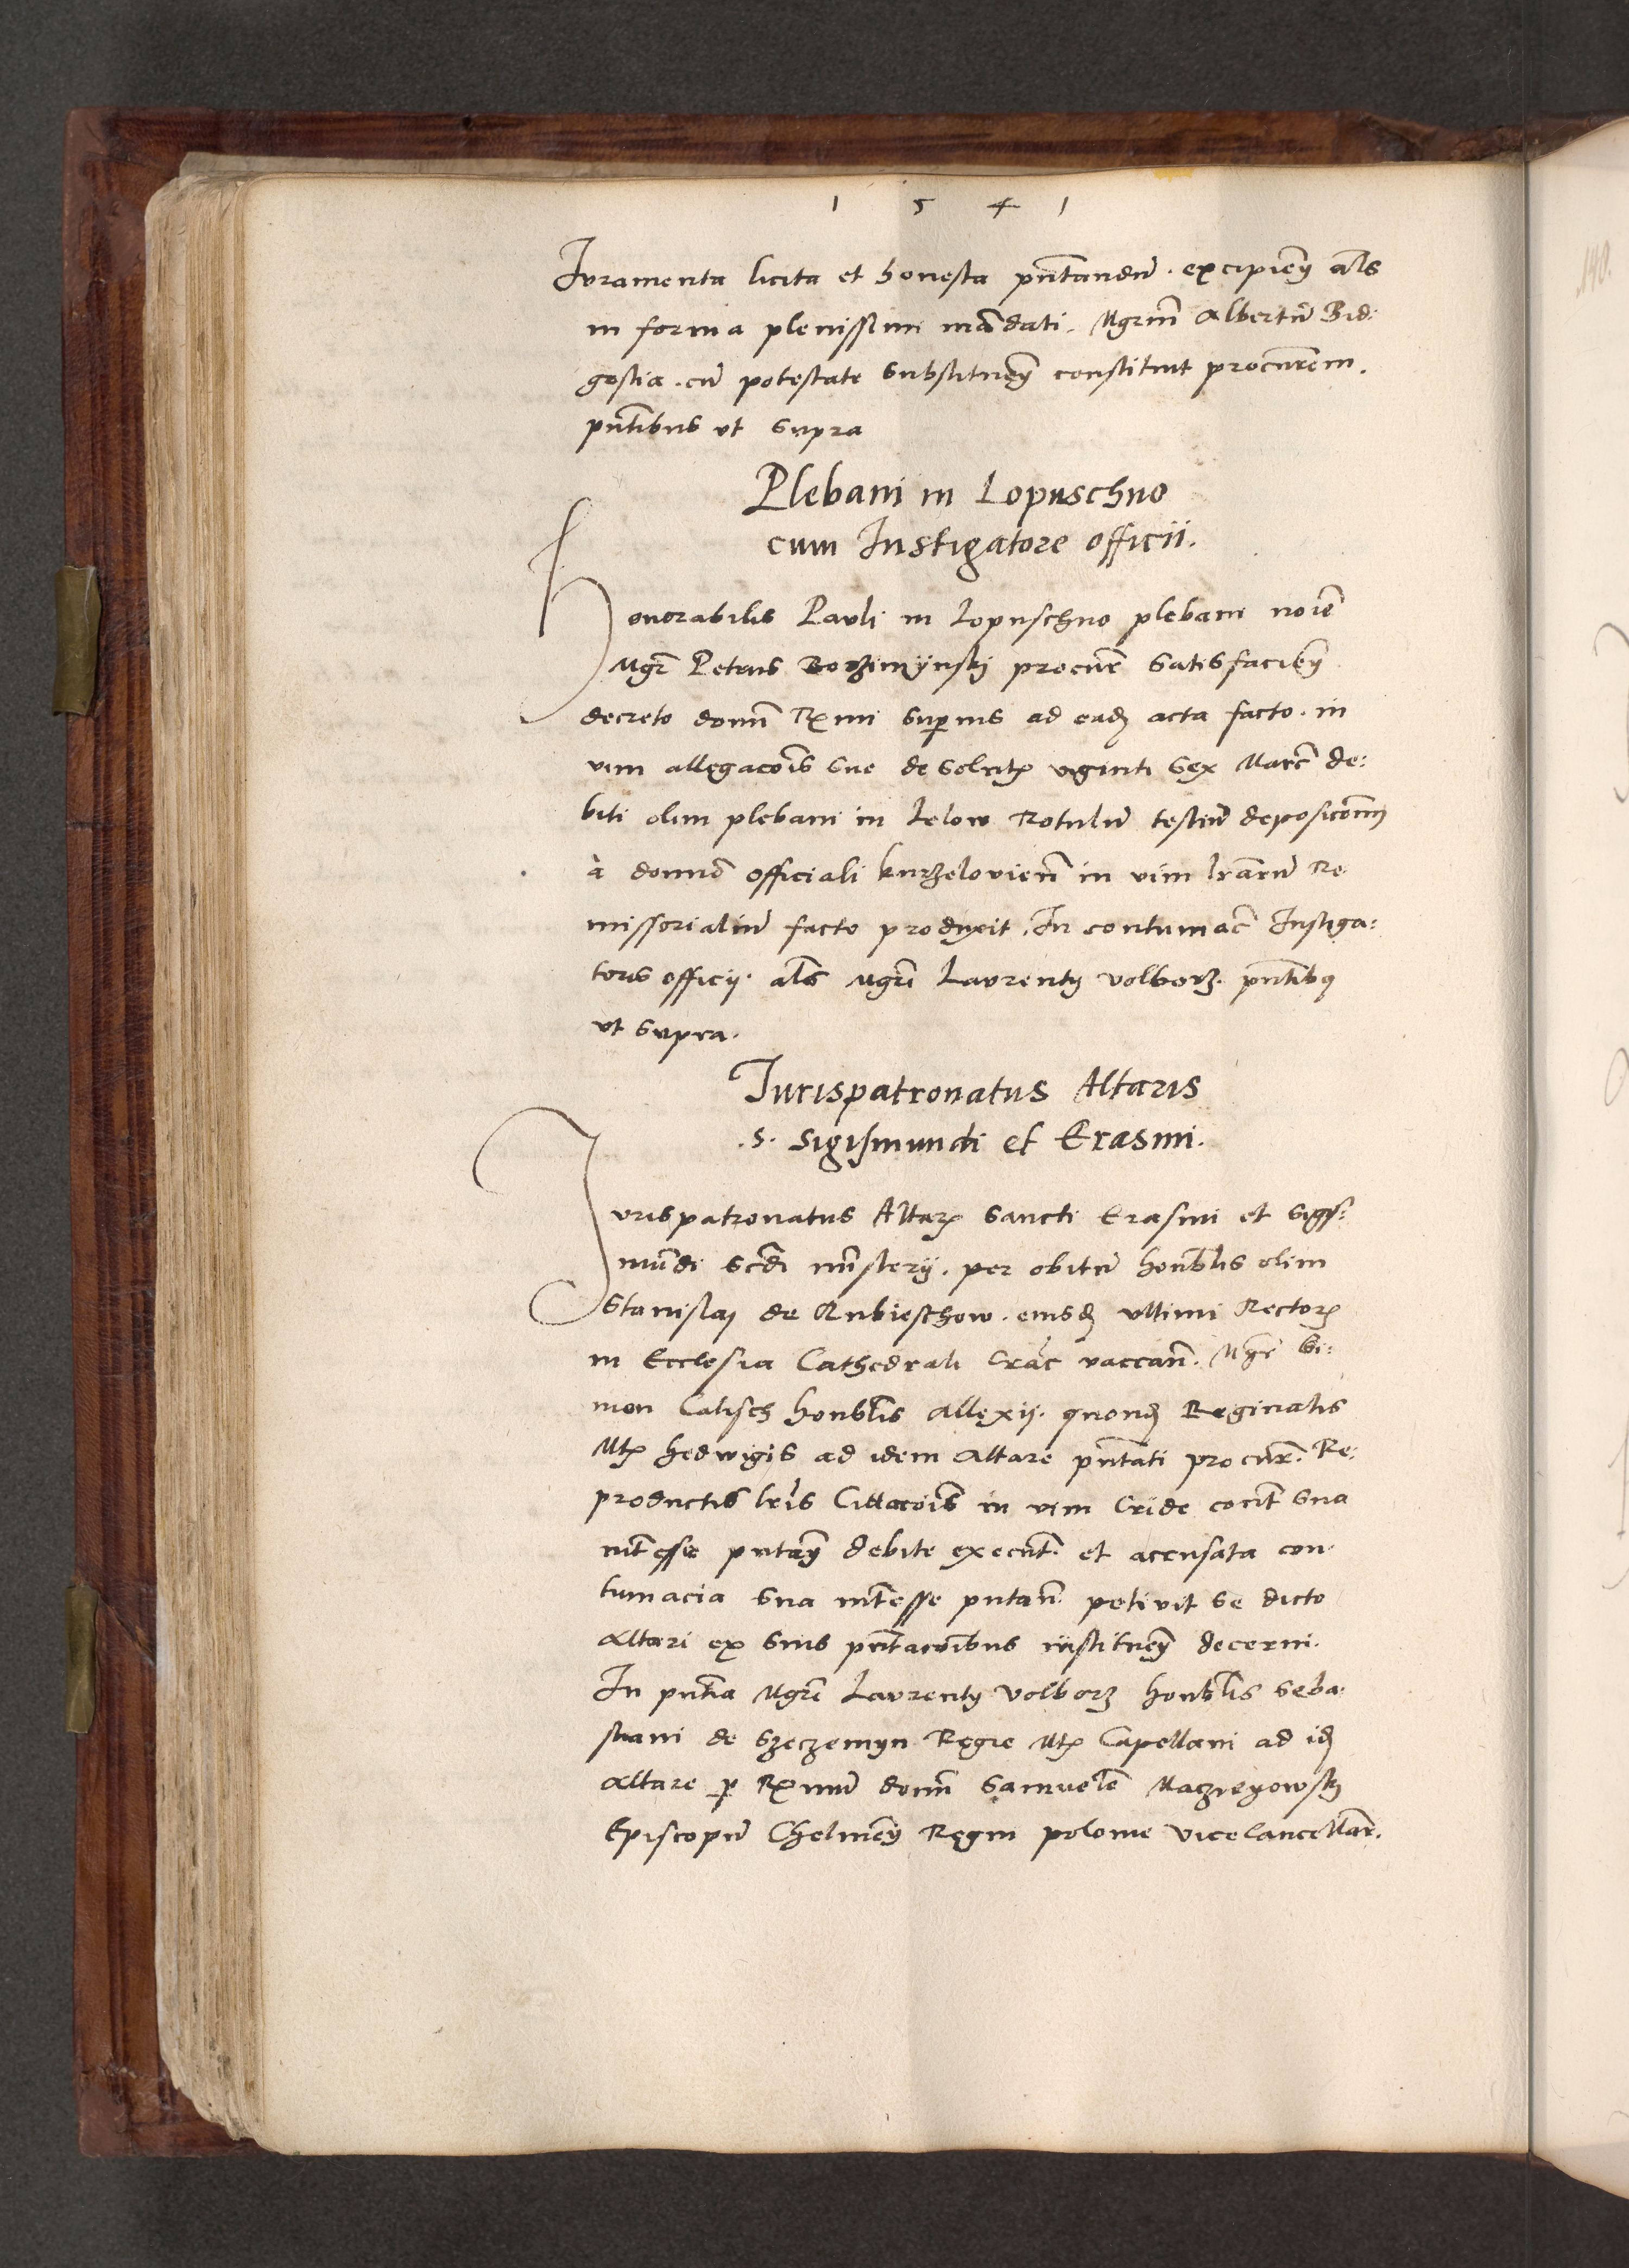 1 5 4 1
Juramenta licita et honesta pñtandũ. excipieñ als
in forma plenissimi mãdati. Mgrm̃ Albertũ Bid:
gostia. cũ potestate substitueñ constituit procuñrem.
pñtibus ut supra
Plebani in Lopuschno
cum Instigatore officii.
Honorabilis Pauli in Lopuschno plebani noie
Mgr̃ Petrus Borzimijnskj procur̃ satisfacień
decreto domñ Rxmi supius ad eadẽ acta facto. in
vim allegacois sue de solutẽ viginti sex Marc̃ de:
biti olim plebani in Lelow Rotulũ testiũ deposicom̃
à domĩo officiali kurzelovieñ in vim lrarũ Re
missorialiũ facto produxit. In contumac̃ Instiga:
toris officij. als Mgrĩ Laurentij Volborz. pñtibus
ut supra.
Jurispatronatus Altaris
.S. Sigismundi et Erasmi.
Jurispatronatus Altarẽ Sancti Erasmi et Sigis:
mũdi scdi mĩsterij. per obitũ honblis olim
Stanislaj de Rubieschow. eiusdẽ ultimi Rectorẽ
in Ecclesia Cathedrali Crac̃ vaccañ. Mgr̃ Si:
mon Calisch honblis Allexij. quondã Reginalis
Mtẽ Hedwigis ad idem Altare pñtati procur̃. Re:
productis lris Cittacois in vim Cride coñt sua
intesse putañ debite execut̃. et accusata con
tumacia sua intesse putañ. petivit se dicto
Altari ex suis pñtacoibus institueñ decerni.
In pñtia Mgrĩ Laurentij Volborz honblis Seba
stiani de Szczemyn Regie Mtẽ Capellani ad idẽ
Altare p Rxmũ domñ Samuelẽ Maczieyowskj
Episcopũ Chelmeñ Regni polonie Vicecancellar̃.